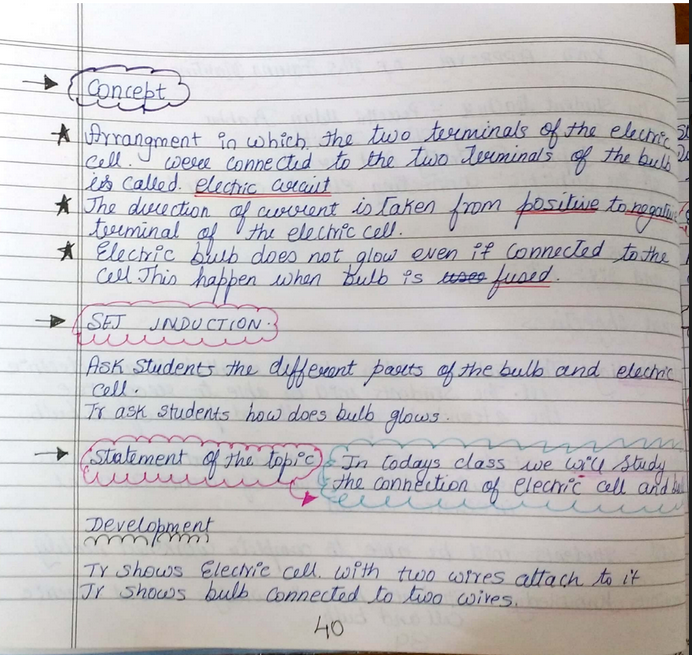 Concept
★ Arrangment in which the two terminals of the electric
cell. were connected to the two Terminals of the bulb
is called. electric circuit
★ The direction of current is taken from positive to negative
terminal of the electric cell.
★ Electric bulb does not glow even if connected to the
cell This happen when bulb is fused.
SET INDUCTION.
Ask students the different parts of the bulb and electric
cell.
Tr ask students how does bulb glows.
Statement of the topic In todays class we will study
the connection of Electric cell and
Development
Tr shows Electric cell. with two wires attach to it
Tr shows bulb connected to two wires.
40